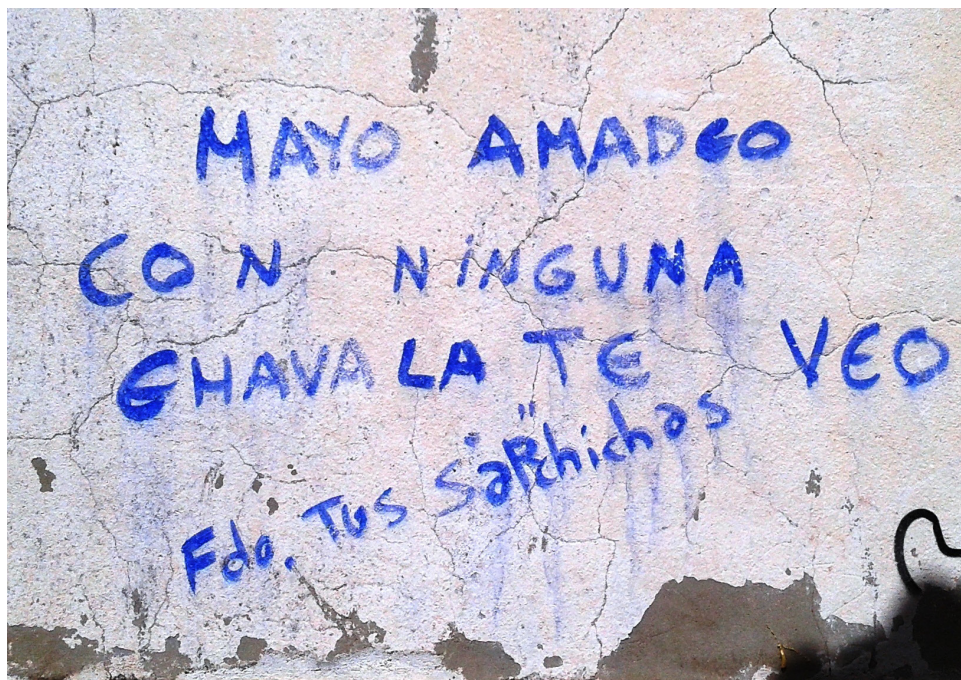 MAYO AMADEO
CON NINGUNA
CHAVALA TE VEO
Fdo. Tus SaRchichas